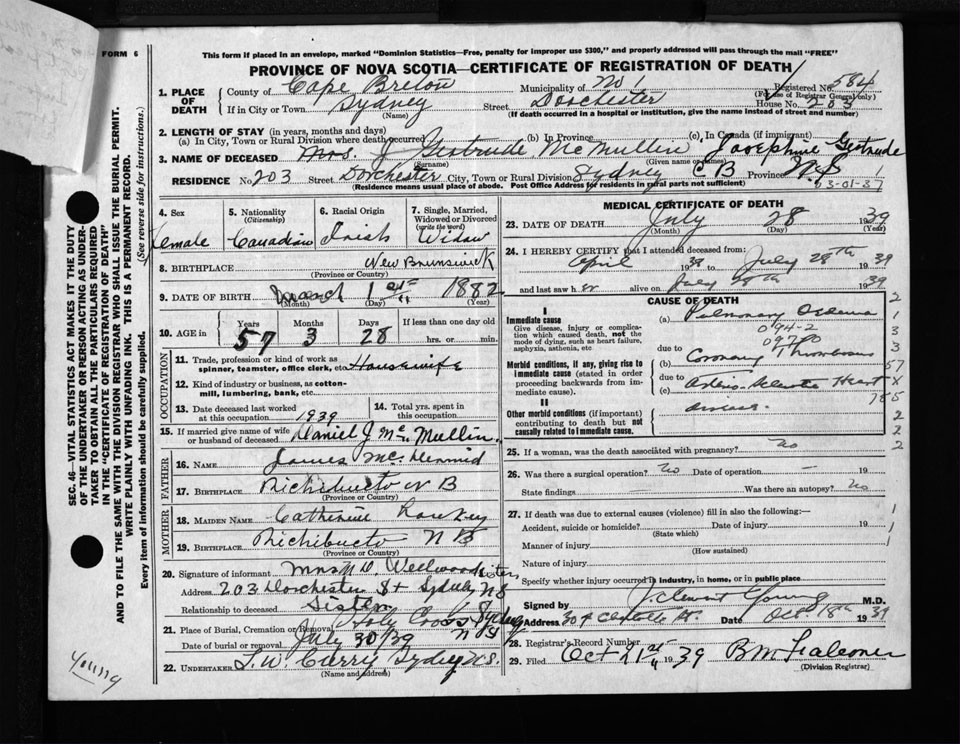 FORM 6
This form if placed in an envelope, marked "Dominion Statistics—Free, penalty for improper use $300," and properly addressed will pass through the mail "FREE"
PROVINCE OF NOVA SCOTIA—CERTIFICATE OF REGISTRATION OF DEATH
Registered No. 584
(For use of Registrar General only)
1. PLACE OF DEATH
County of Cape Breton Municipality of No 1
If in City or Town Sydney Street Dorchester House No. 203
(Name) (If death occurred in a hospital or institution, give the name instead of street and number)
2. LENGTH OF STAY (in years, months and days)
(a) In City, Town or Rural Division where death occurred (b) In Province (c) In Canada (if immigrant)
3. NAME OF DECEASED Mrs. J Gertrude McMullin Josephine Gertrude
(Surname) (Given name or names)
RESIDENCE No 203 Street Dorchester City, Town or Rural Division Sydney CB Province N.S
(Residence means usual place of abode. Post Office Address for residents in rural parts not sufficient)
03-01-37
4. Sex 5. Nationality (Citizenship) 6. Racial Origin 7. Single, Married, Widowed or Divorced (write the word)
Female Canadian Irish Widow
8. BIRTHPLACE New Brunswick
(Province or Country)
9. DATE OF BIRTH March 1st 1882
(Month) (Day) (Year)
10. AGE in Years Months Days If less than one day old
57 3 28 hrs. or min.
OCCUPATION
11. Trade, profession or kind of work as spinner, teamster, office clerk, etc. Housewife
12. Kind of industry or business, as cotton-mill, lumbering, bank, etc.
13. Date deceased last worked at this occupation 1939 14. Total yrs. spent in this occupation
15. If married give name of wife or husband of deceased Daniel J. Mc Mullin
FATHER
16. NAME James McDermid
17. BIRTHPLACE Richibucto N B
(Province or Country)
MOTHER
18. MAIDEN NAME Catherine
19. BIRTHPLACE Richibucto N B
(Province or Country)
20. Signature of informant Mrs M D. Wellwood sister
Address 203 Dorchester St Sydney N S
Relationship to deceased Sister
21. Place of Burial, Cremation or Removal Holy Cross Sydney
Date of burial or removal July 30/39 N S
22. UNDERTAKER T. W. Curry Sydney N.S.
(Name and address)
MEDICAL CERTIFICATE OF DEATH
23. DATE OF DEATH July 28 1939
(Month) (Day) (Year)
24. I HEREBY CERTIFY that I attended deceased from:
April 1939 to July 28th 1939
and last saw her alive on July 28th 1939
CAUSE OF DEATH
I
Immediate cause
Give disease, injury or complication which caused death, not the mode of dying, such as heart failure, asphyxia, asthenia, etc
(a) Pulmonary Oedema
094-2
09700
due to
Morbid conditions, if any, giving rise to immediate cause (stated in order proceeding backwards from immediate cause).
(b) Coronary Thrombosis
due to
(c) Arterio-Sclerotic Heart
disease
II
Other morbid conditions (if important) contributing to death but not causally related to immediate cause.
2
1
3
3
57
X
785
2
2
2
25. If a woman, was the death associated with pregnancy? No
26. Was there a surgical operation? No Date of operation — 19
State findings Was there an autopsy? No
27. If death was due to external causes (violence) fill in also the following:—
Accident, suicide or homicide? Date of injury 19
(State which)
Manner of injury
(How sustained)
Nature of injury
Specify whether injury occurred in industry, in home, or in public place
Signed by J Clement Young M.D.
Address 304 Charlotte St. Date Oct 18th 1939
28. Registrar's Record Number
29. Filed Oct 21st 1939 B M Falconer
(Division Registrar)
SEC. 46—VITAL STATISTICS ACT MAKES IT THE DUTY
OF THE UNDERTAKER OR PERSON ACTING AS UNDER-
TAKER TO OBTAIN ALL THE PARTICULARS REQUIRED
IN THE "CERTIFICATE OF REGISTRATION OF DEATH"
AND TO FILE THE SAME WITH THE DIVISION REGISTRAR WHO SHALL ISSUE THE BURIAL PERMIT.
WRITE PLAINLY WITH UNFADING INK. THIS IS A PERMANENT RECORD.
Every item of information should be carefully supplied.
(See reverse side for instructions.)
Young